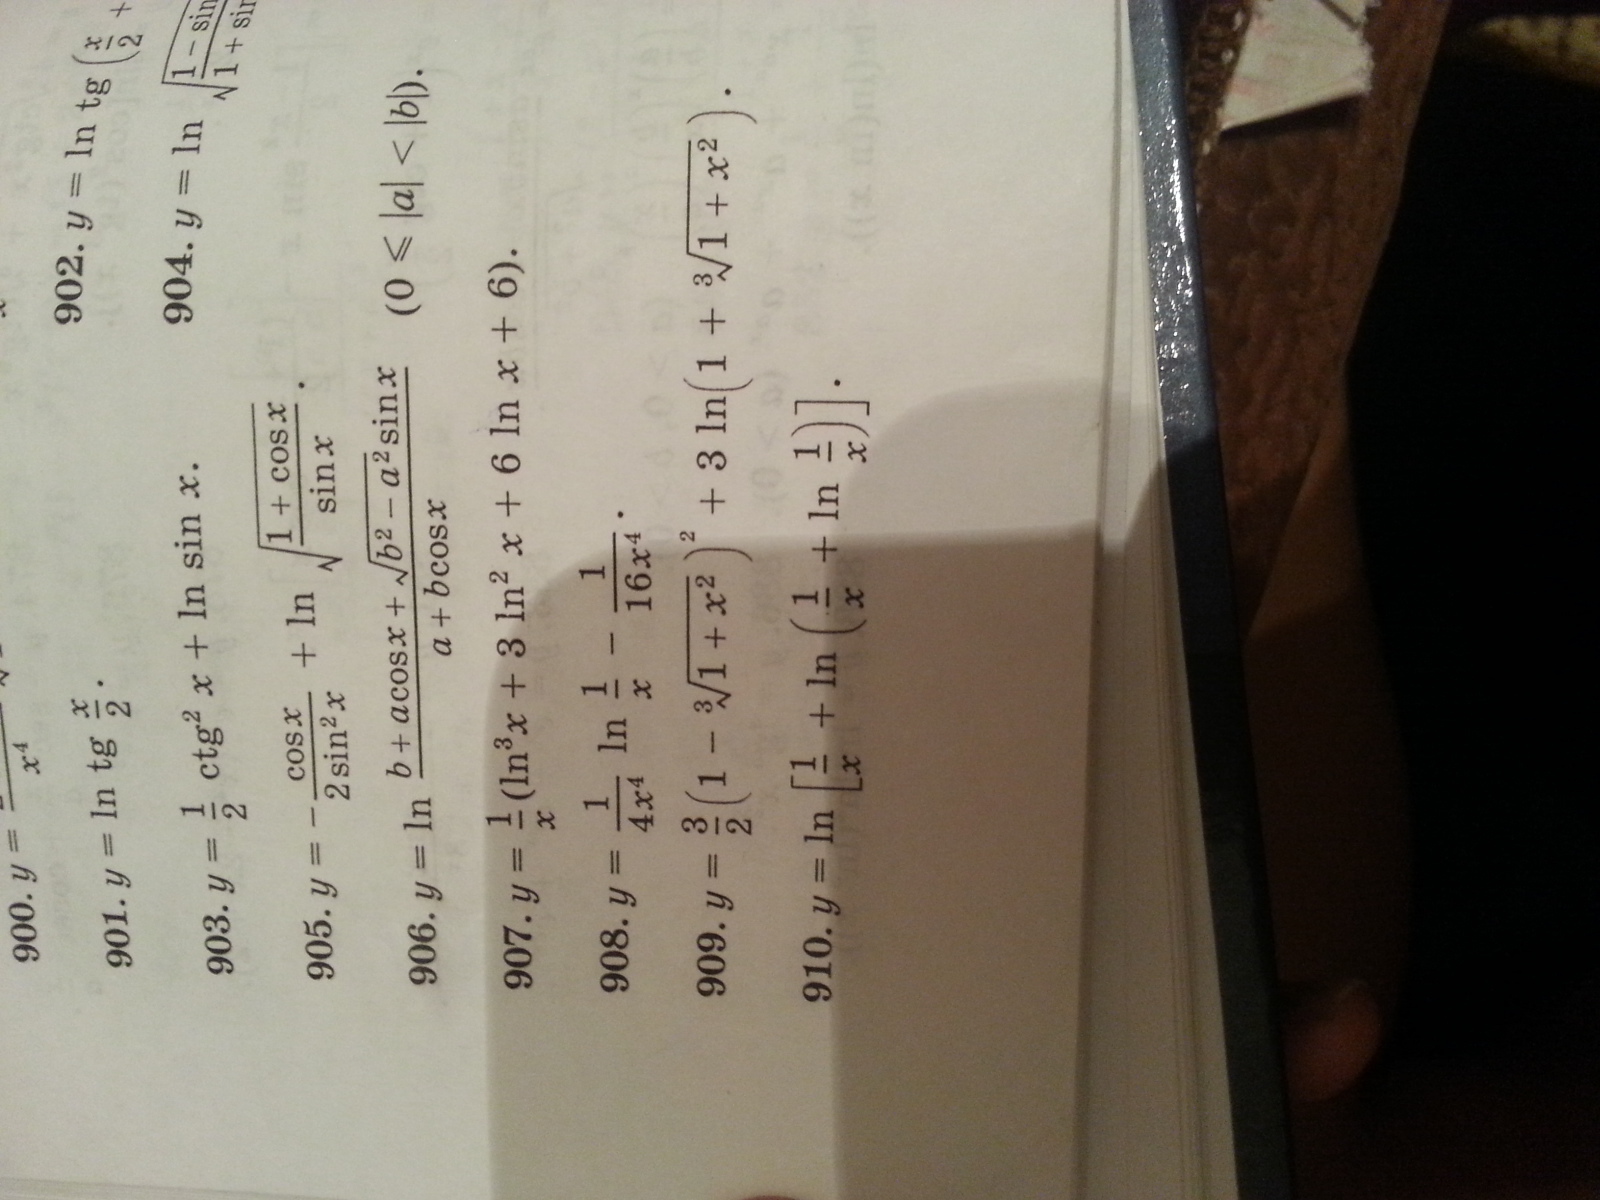 900. y =
x⁴
901. y = ln tg x/2. 902. y = ln tg (x/2 +
903. y = 1/2 ctg² x + ln sin x. 904. y = ln √((1 − sin / 1 + sin
905. y = − cos x / 2 sin² x + ln √((1 + cos x) / sin x).
906. y = ln (b + a cos x + √(b² − a²) sin x) / (a + b cos x) (0 ⩽ |a| < |b|).
907. y = 1/x (ln³ x + 3 ln² x + 6 ln x + 6).
908. y = 1/4x⁴ ln 1/x − 1/16x⁴.
909. y = 3/2 (1 − ∛(1 + x²))² + 3 ln(1 + ∛(1 + x²)).
910. y = ln [1/x + ln (1/x + ln 1/x)].